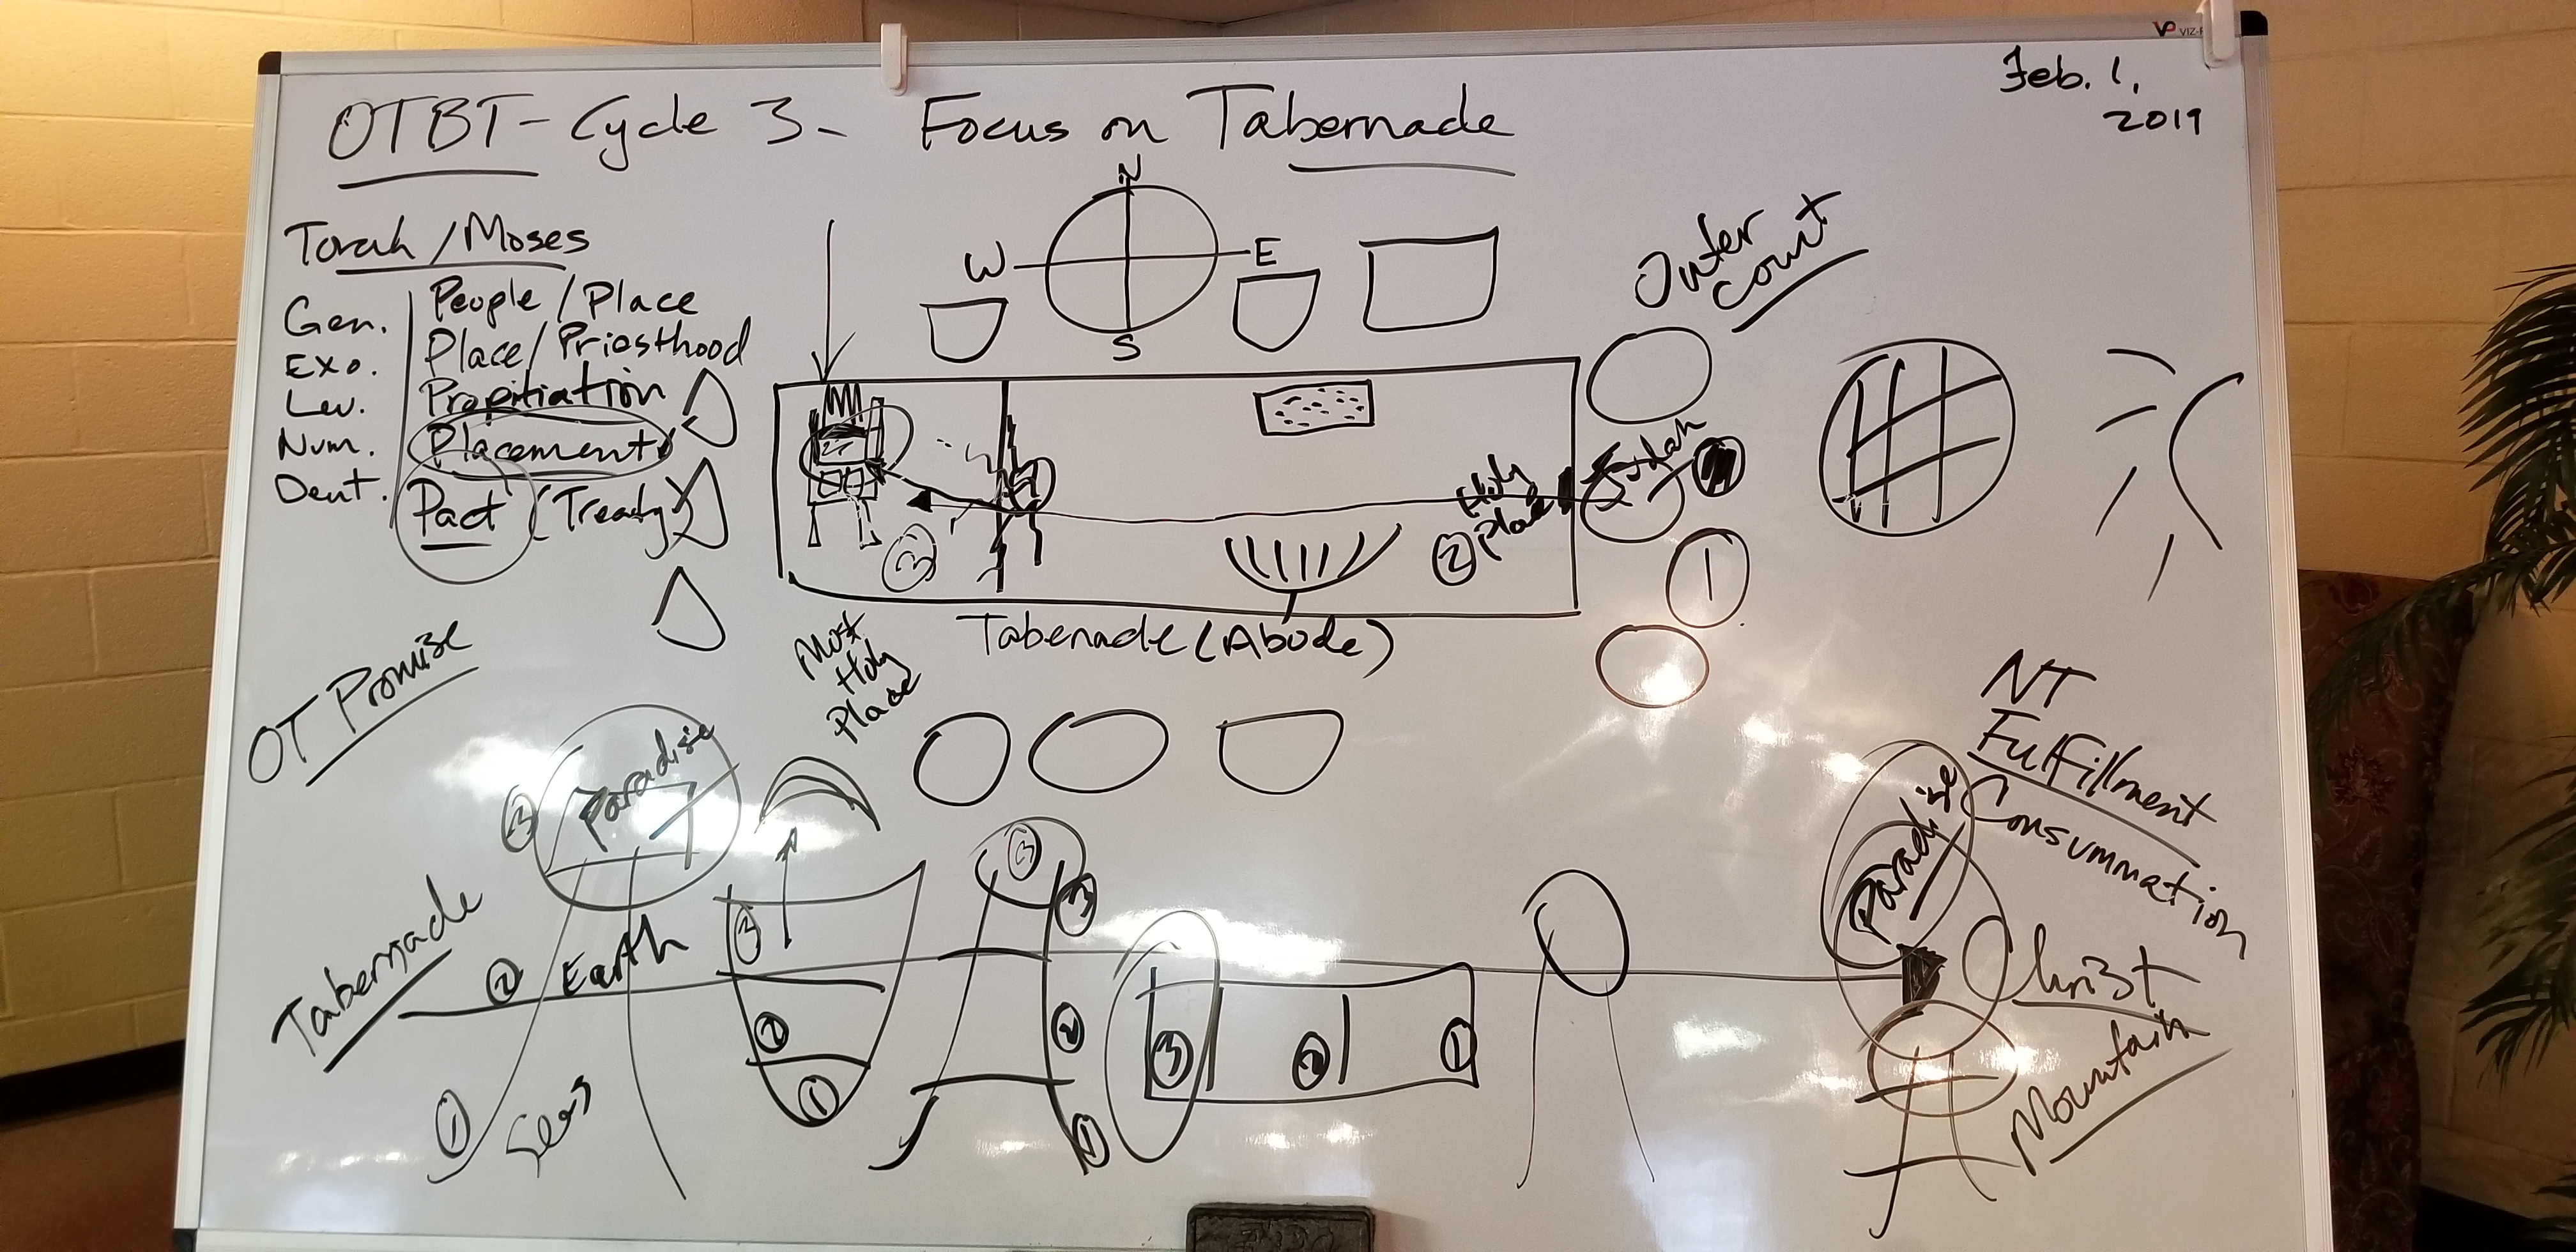 OTBT - Cycle 3 - Focus on Tabernacle
Feb. 1,
2019
Torah / Moses
Gen. People / Place
Exo. Place / Priesthood
Lev. Propitiation
Num. Placement
Deut. Pact (Treaty)
N
W E
S
Outer
Court
Judah
Holy
Place
2
3
1
Tabenacle (Abode)
Most
Holy
Place
OT Promise
NT
Fulfillment
Consummation
Tabernacle
3 Paradise
2 Earth
1 Seas
3
2
1
3
3
2
1
3 2 1
Paradise
Christ
Mountain